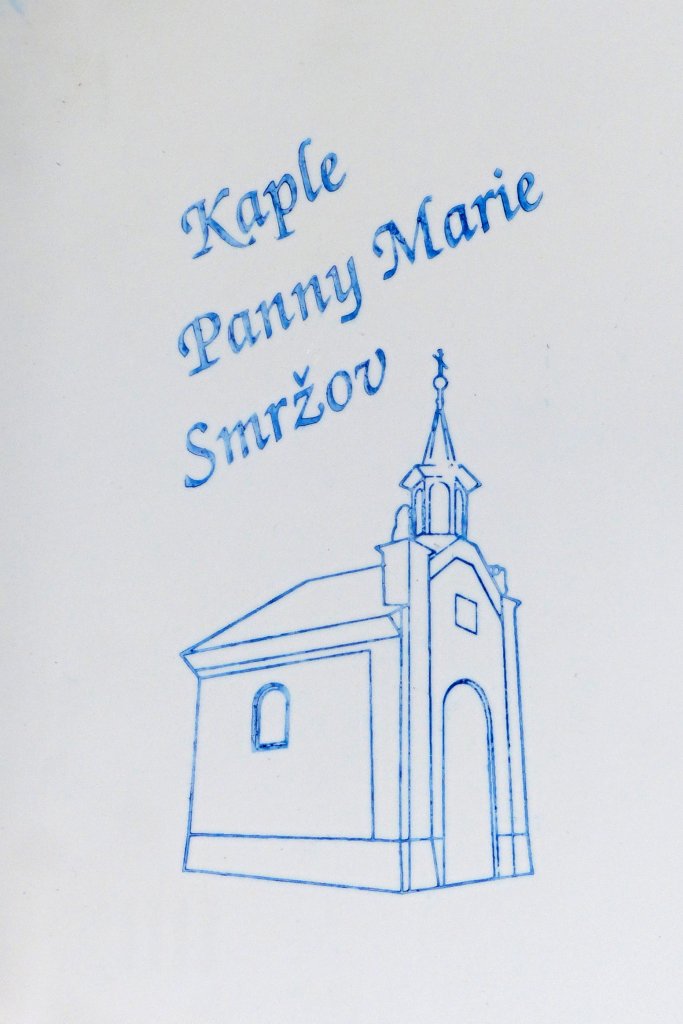 Kaple
Panny Marie
Smržov